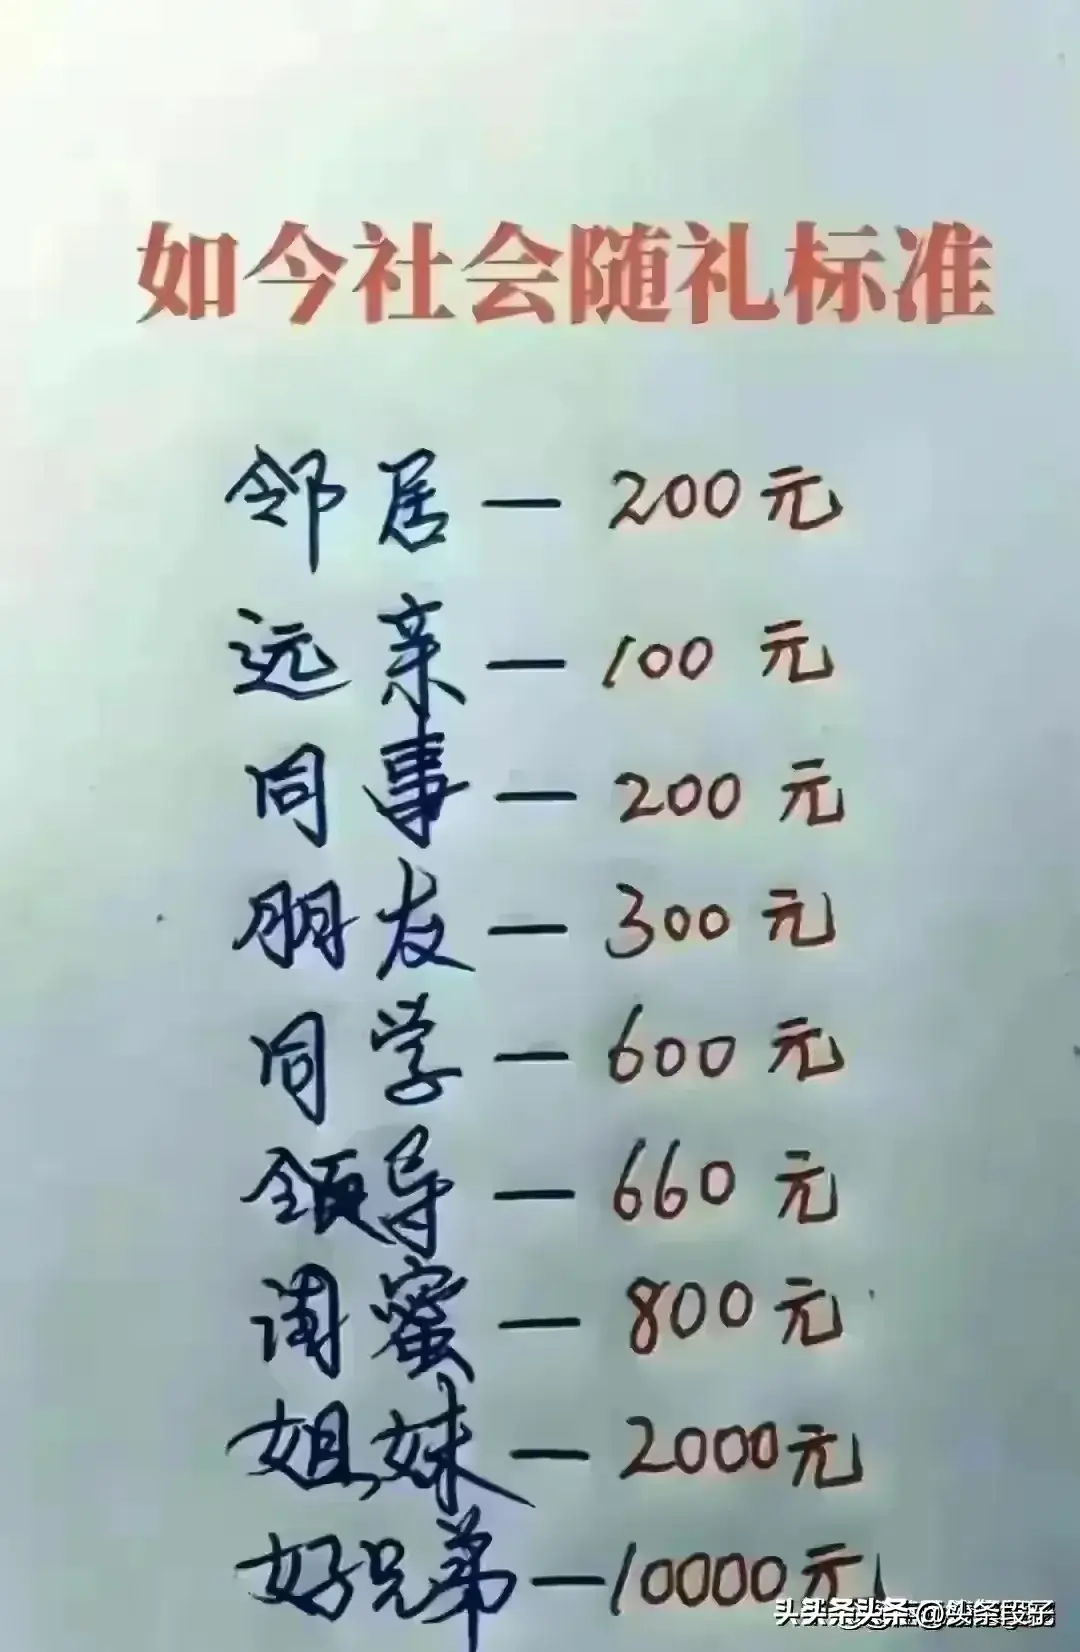 如今社会随礼标准
邻居—200元
远亲—100元
同事—200元
朋友—300元
同学—600元
领导—660元
闺蜜—800元
姐妹—2000元
好兄弟—10000元
头条 @头条段子